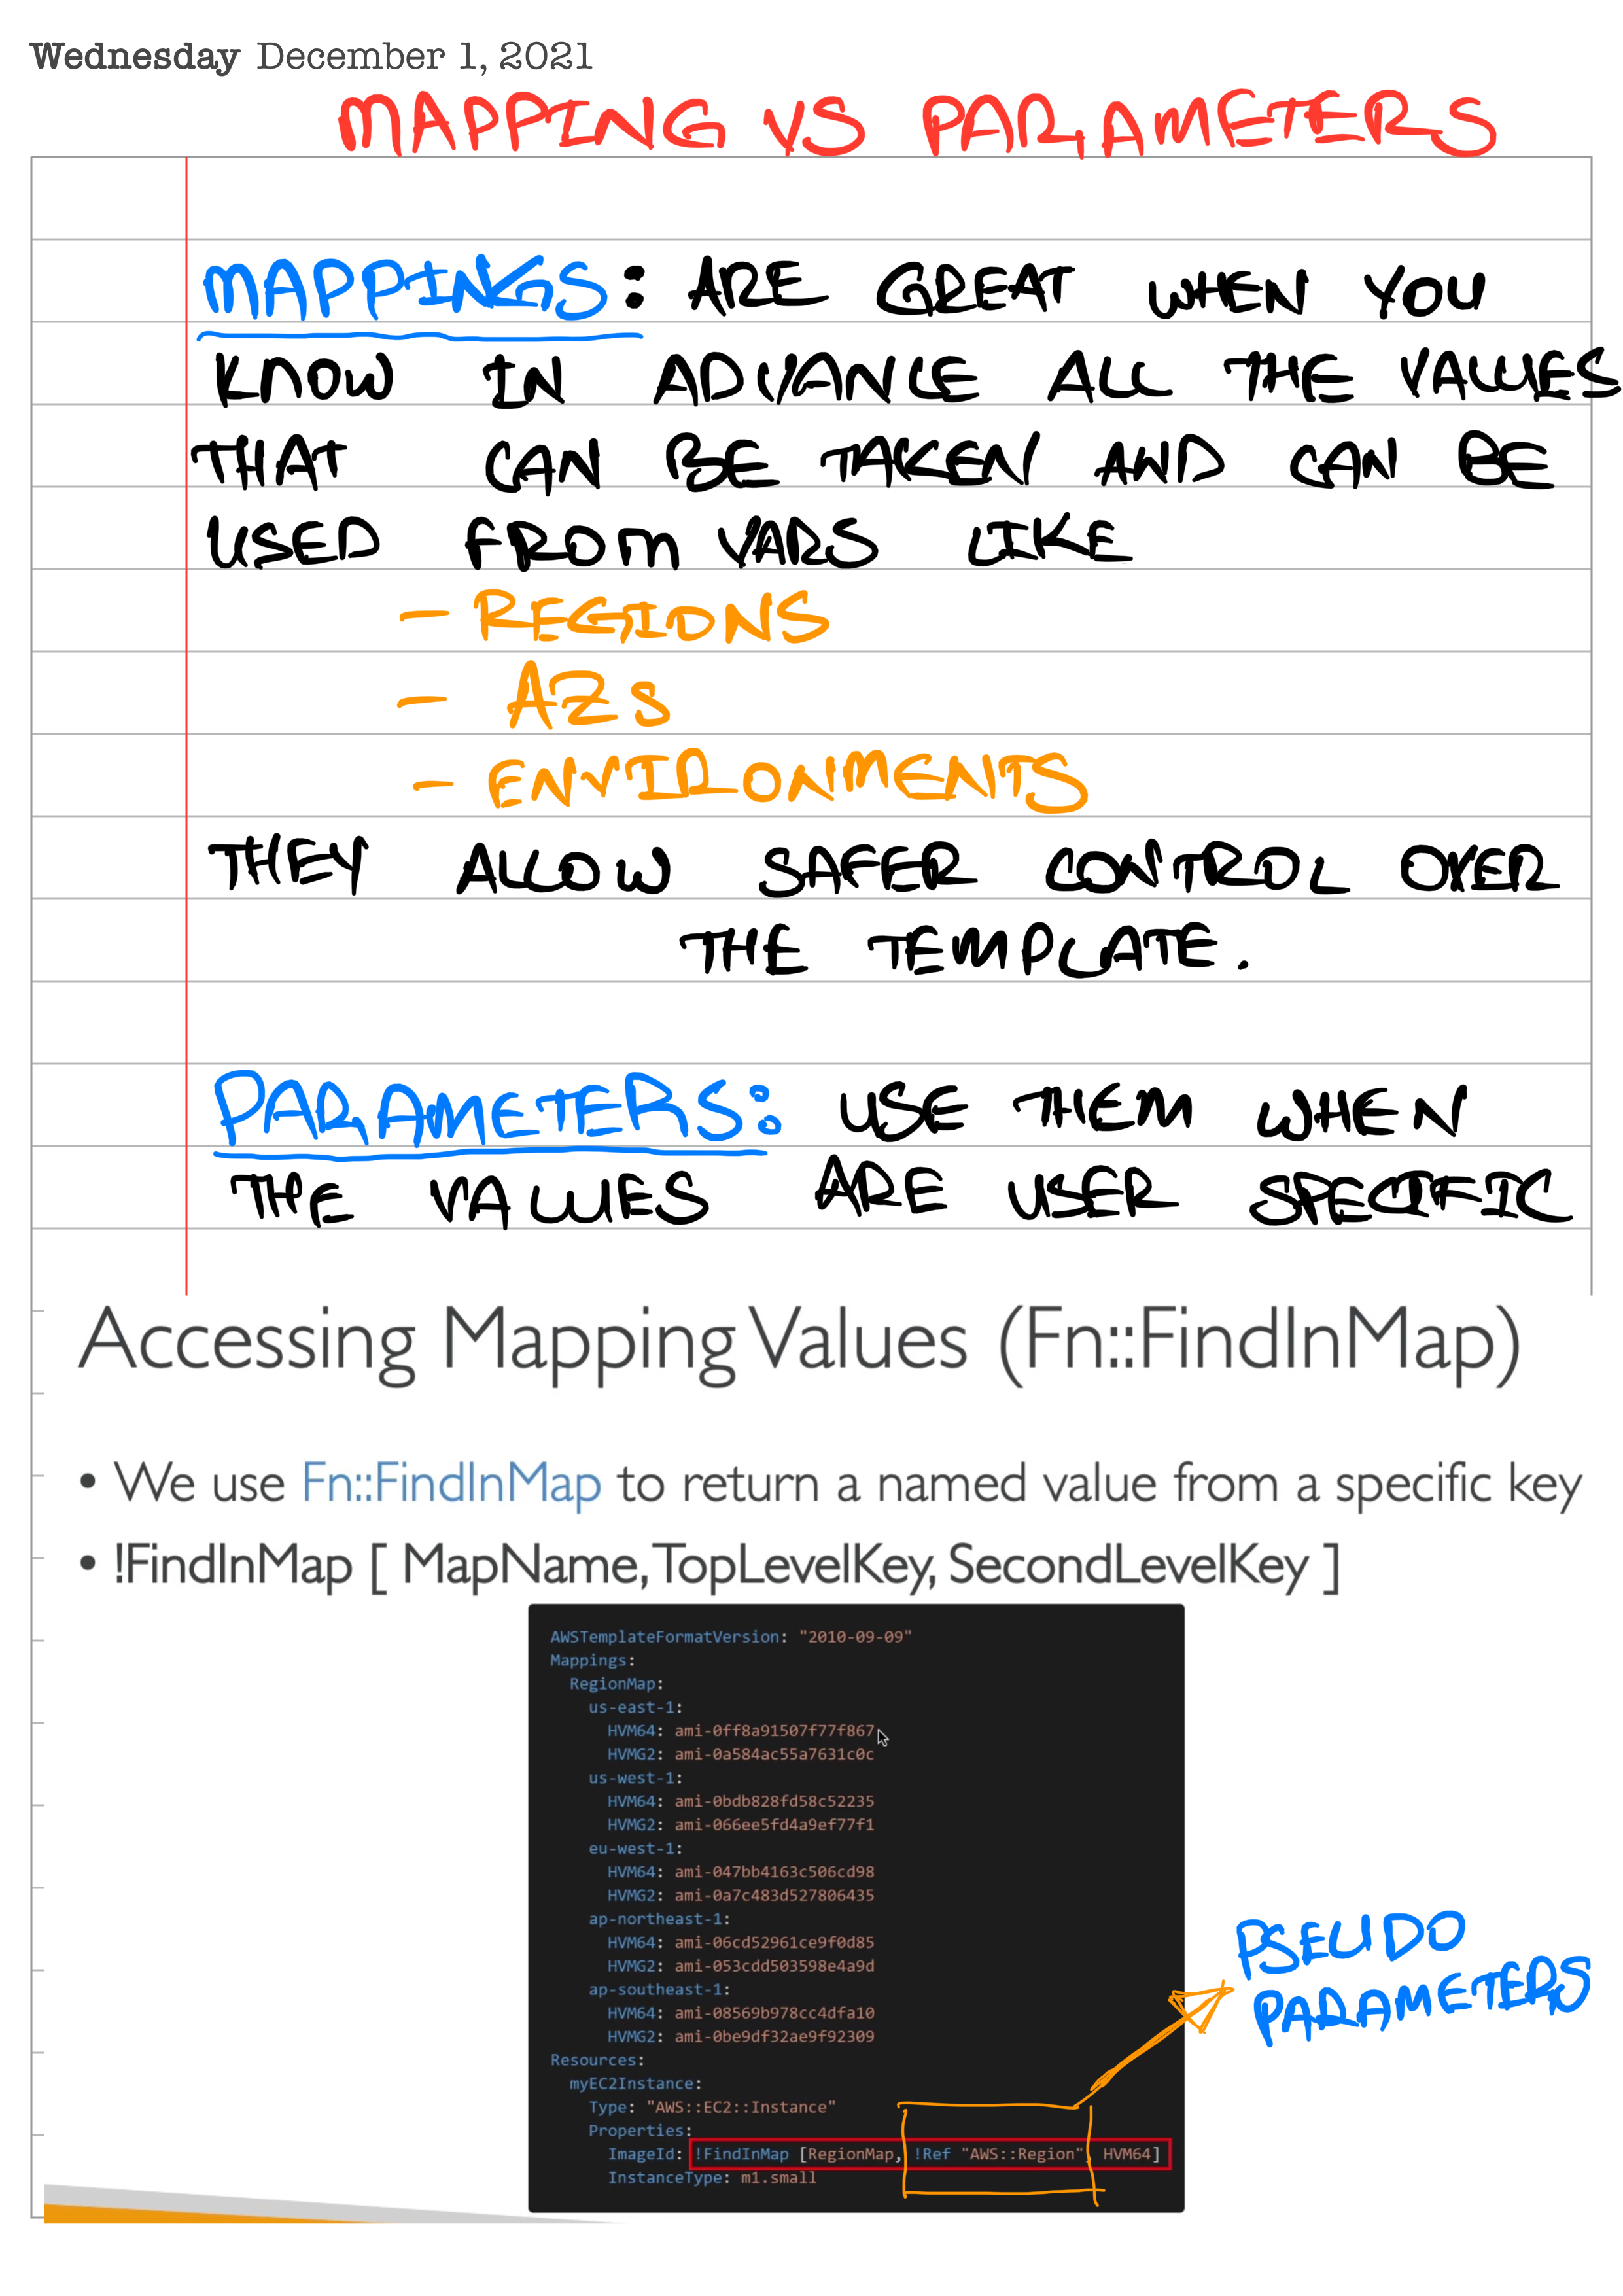 Wednesday December 1, 2021
MAPPING VS PARAMETERS
MAPPINGS: ARE GREAT WHEN YOU
KNOW IN ADVANCE ALL THE VALUES
THAT CAN BE TAKEN AND CAN BE
USED FROM VARS LIKE
- REGIONS
- AZs
- ENVIRONMENTS
THEY ALLOW SAFER CONTROL OVER
THE TEMPLATE.
PARAMETERS: USE THEM WHEN
THE VALUES ARE USER SPECIFIC
Accessing Mapping Values (Fn::FindInMap)
• We use Fn::FindInMap to return a named value from a specific key
• !FindInMap [ MapName, TopLevelKey, SecondLevelKey ]
AWSTemplateFormatVersion: "2010-09-09"
Mappings:
RegionMap:
us-east-1:
HVM64: ami-0ff8a91507f77f867
HVMG2: ami-0a584ac55a7631c0c
us-west-1:
HVM64: ami-0bdb828fd58c52235
HVMG2: ami-066ee5fd4a9ef77f1
eu-west-1:
HVM64: ami-047bb4163c506cd98
HVMG2: ami-0a7c483d527806435
ap-northeast-1:
HVM64: ami-06cd52961ce9f0d85
HVMG2: ami-053cdd503598e4a9d
ap-southeast-1:
HVM64: ami-08569b978cc4dfa10
HVMG2: ami-0be9df32ae9f92309
Resources:
myEC2Instance:
Type: "AWS::EC2::Instance"
Properties:
ImageId: !FindInMap [RegionMap, !Ref "AWS::Region", HVM64]
InstanceType: m1.small
PSEUDO
PARAMETERS